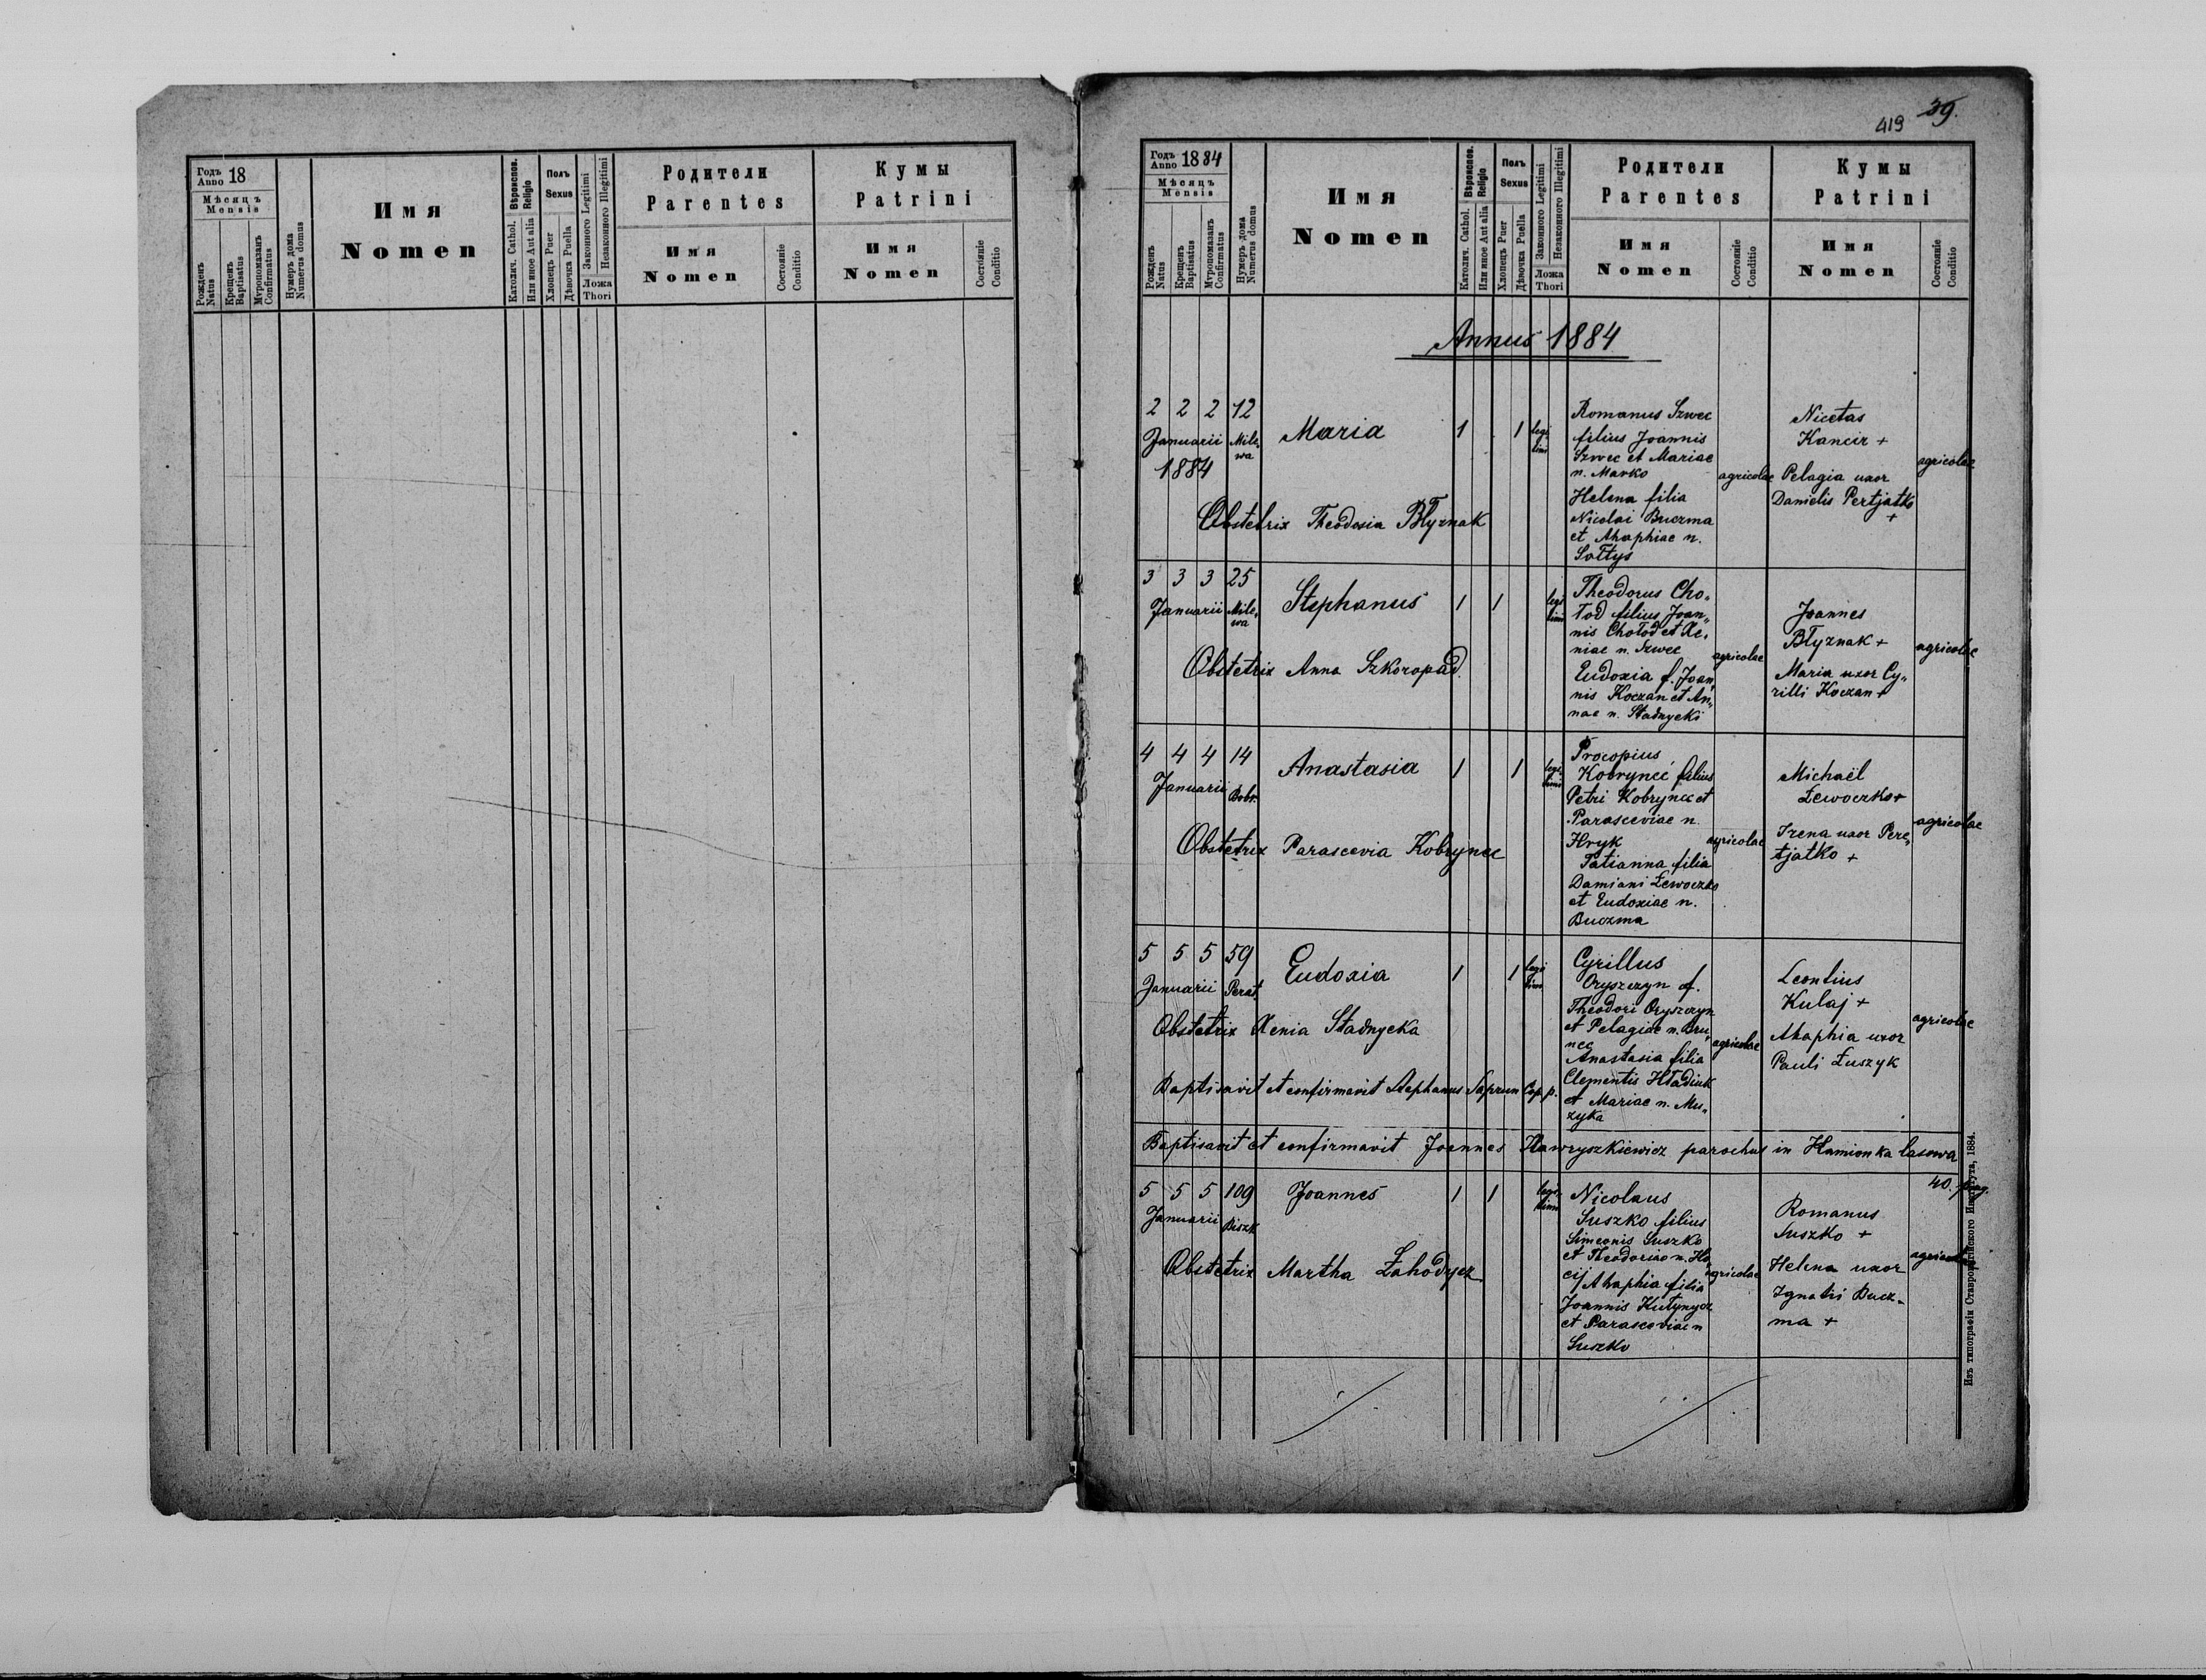 Годъ Anno 18
Мѣсяцъ
Mensis
Рожденъ Natus
Крещенъ Baptisatus
Мѵропомазанъ Confirmatus
Нумеръ дома Numerus domus
Имя
Nomen
Вѣроиспов. Religio
Католич. Cathol.
Или иное Aut alia
Полъ
Sexus
Хлопецъ Puer
Дѣвочка Puella
Законного Legitimi
Незаконного Illegitimi
Ложа
Thori
Родители
Parentes
Имя
Nomen
Состояніе
Conditio
Кумы
Patrini
Имя
Nomen
Состояніе
Conditio
419 39.
Годъ Anno 1884
Мѣсяцъ
Mensis
Рожденъ Natus
Крещенъ Baptisatus
Мѵропомазанъ Confirmatus
Нумеръ дома Numerus domus
Имя
Nomen
Вѣроиспов. Religio
Католич. Cathol.
Или иное Aut alia
Полъ
Sexus
Хлопецъ Puer
Дѣвочка Puella
Законного Legitimi
Незаконного Illegitimi
Ложа
Thori
Родители
Parentes
Имя
Nomen
Состояніе
Conditio
Кумы
Patrini
Имя
Nomen
Состояніе
Conditio
Annus 1884
2 2 2 12
Januarii Mile„
wa
1884
Maria
1 1 legi
timi
Romanus Szwec
filius Joannis
Szwec et Mariae
n. Marko
Helena filia
Nicolai Buczma
et Ahaphiae n.
Sołtys
agricolae
Nicetas
Kancir +
Pelagia uxor
Danielis Pertjatko
+
agricolae
Obstetrix Theodosia Błyznak
3 3 3 25
Januarii Mile„
wa
Stephanus
1 1 legi
timi
Theodorus Cho„
łod filius Joan„
nis Chołod et Xe„
niae n. Szwec
Eudoxia f. Joan„
nis Koczan et An„
nae n. Stadnycki
agricolae
Joannes
Błyznak +
Maria uxor Cy„
rilli Koczan +
agricolae
Obstetrix Anna Szkoropad.
4 4 4 14
Januarii Bobr.
Anastasia
1 1 legi
timi
Procopius
Kobrynec filius
Petri Kobrynec et
Parasceviae n.
Hryk
Tatianna filia
Damiani Lewoczko
et Eudoxiae n.
Buczma
agricolae
Michaël
Lewoczko +
Irena uxor Pere„
tjatko +
agricolae
Obstetrix Parascevia Kobrynec
5 5 5 59
Januarii Perat.
Eudoxia
1 1 legi
timi
Cyrillus
Oryszczyn f.
Theodori Oryszczyn
et Pelagiae n. Bru„
nec
Anastasia filia
Clementis Hładiuk
et Mariae n. Mu„
zyka
agricolae
Leontius
Kulaj +
Ahaphia uxor
Pauli Łuszyk
agricolae
Obstetrix Xenia Stadnycka
Baptisavit et confirmavit Stephanus Saprun Cop. p.
Baptisavit et confirmavit Joannes Hawryszkiewicz parochus in Kamionka lasowa
5 5 5 109
Januarii Biszk
Joannes
1 1 legi
timi
Nicolaus
Suszko filius
Simeonis Suszko
et Theodoriae n. Ho„
cij Ahaphia filia
Joannis Kutynycz
et Parasceviae n
Suszko
agricolae
40.
Romanus
Suszko +
Helena uxor
Ignatii Bucz„
ma +
agricolae
Obstetrix Martha Zahodycz
Изъ типографіи Ставропигійского Института, 1884.